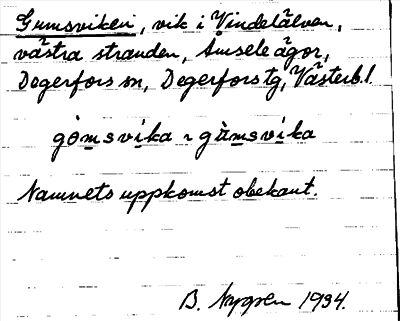 Gumsviken, vik i Vindelälven,
västra stranden, Åmsele ägor,
Degerfors sn, Degerfors tg, Västerb.l.
gòmsvika ~ gùmsvika
Namnets uppkomst obekant.
B. Nygren 1934.